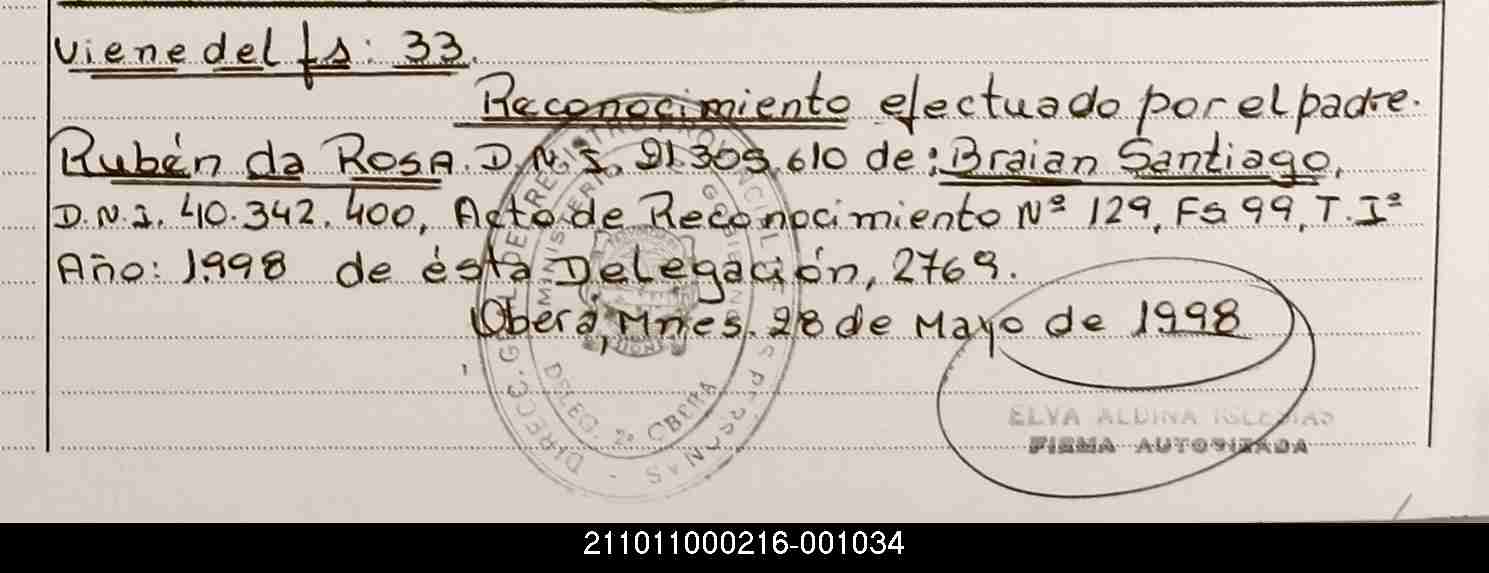 Viene del fs: 33.
Reconocimiento efectuado por el padre.
Rubén da Rosa. D.N.I. 21.305.610 de: Braian Santiago,
D.N.I. 40.342.400, Acta de Reconocimiento Nº 129, Fs 99, T. Iº
Año: 1.998 de ésta Delegación, 2769.
Oberá, Mnes. 28 de Mayo de 1998
DIRECC. GRAL. DEL REGISTRO PROVINCIAL DE LAS PERSONAS
MINISTERIO DE GOBIERNO
DELEG. 2ª OBERA
ELVA ALDINA IGLESIAS
FIRMA AUTORIZADA
211011000216-001034